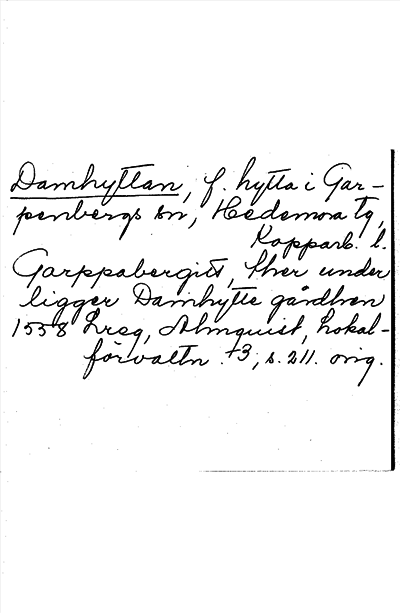 Damhyttan, f. hytta i Gar-
penbergs sn, Hedemora tg,
Kopparb. l.
Garppabergitt, ther under
ligger Damhytte gårdhen
1558 hreg, Almquist, Lokal-
förvaltn. +3, s. 211. orig.